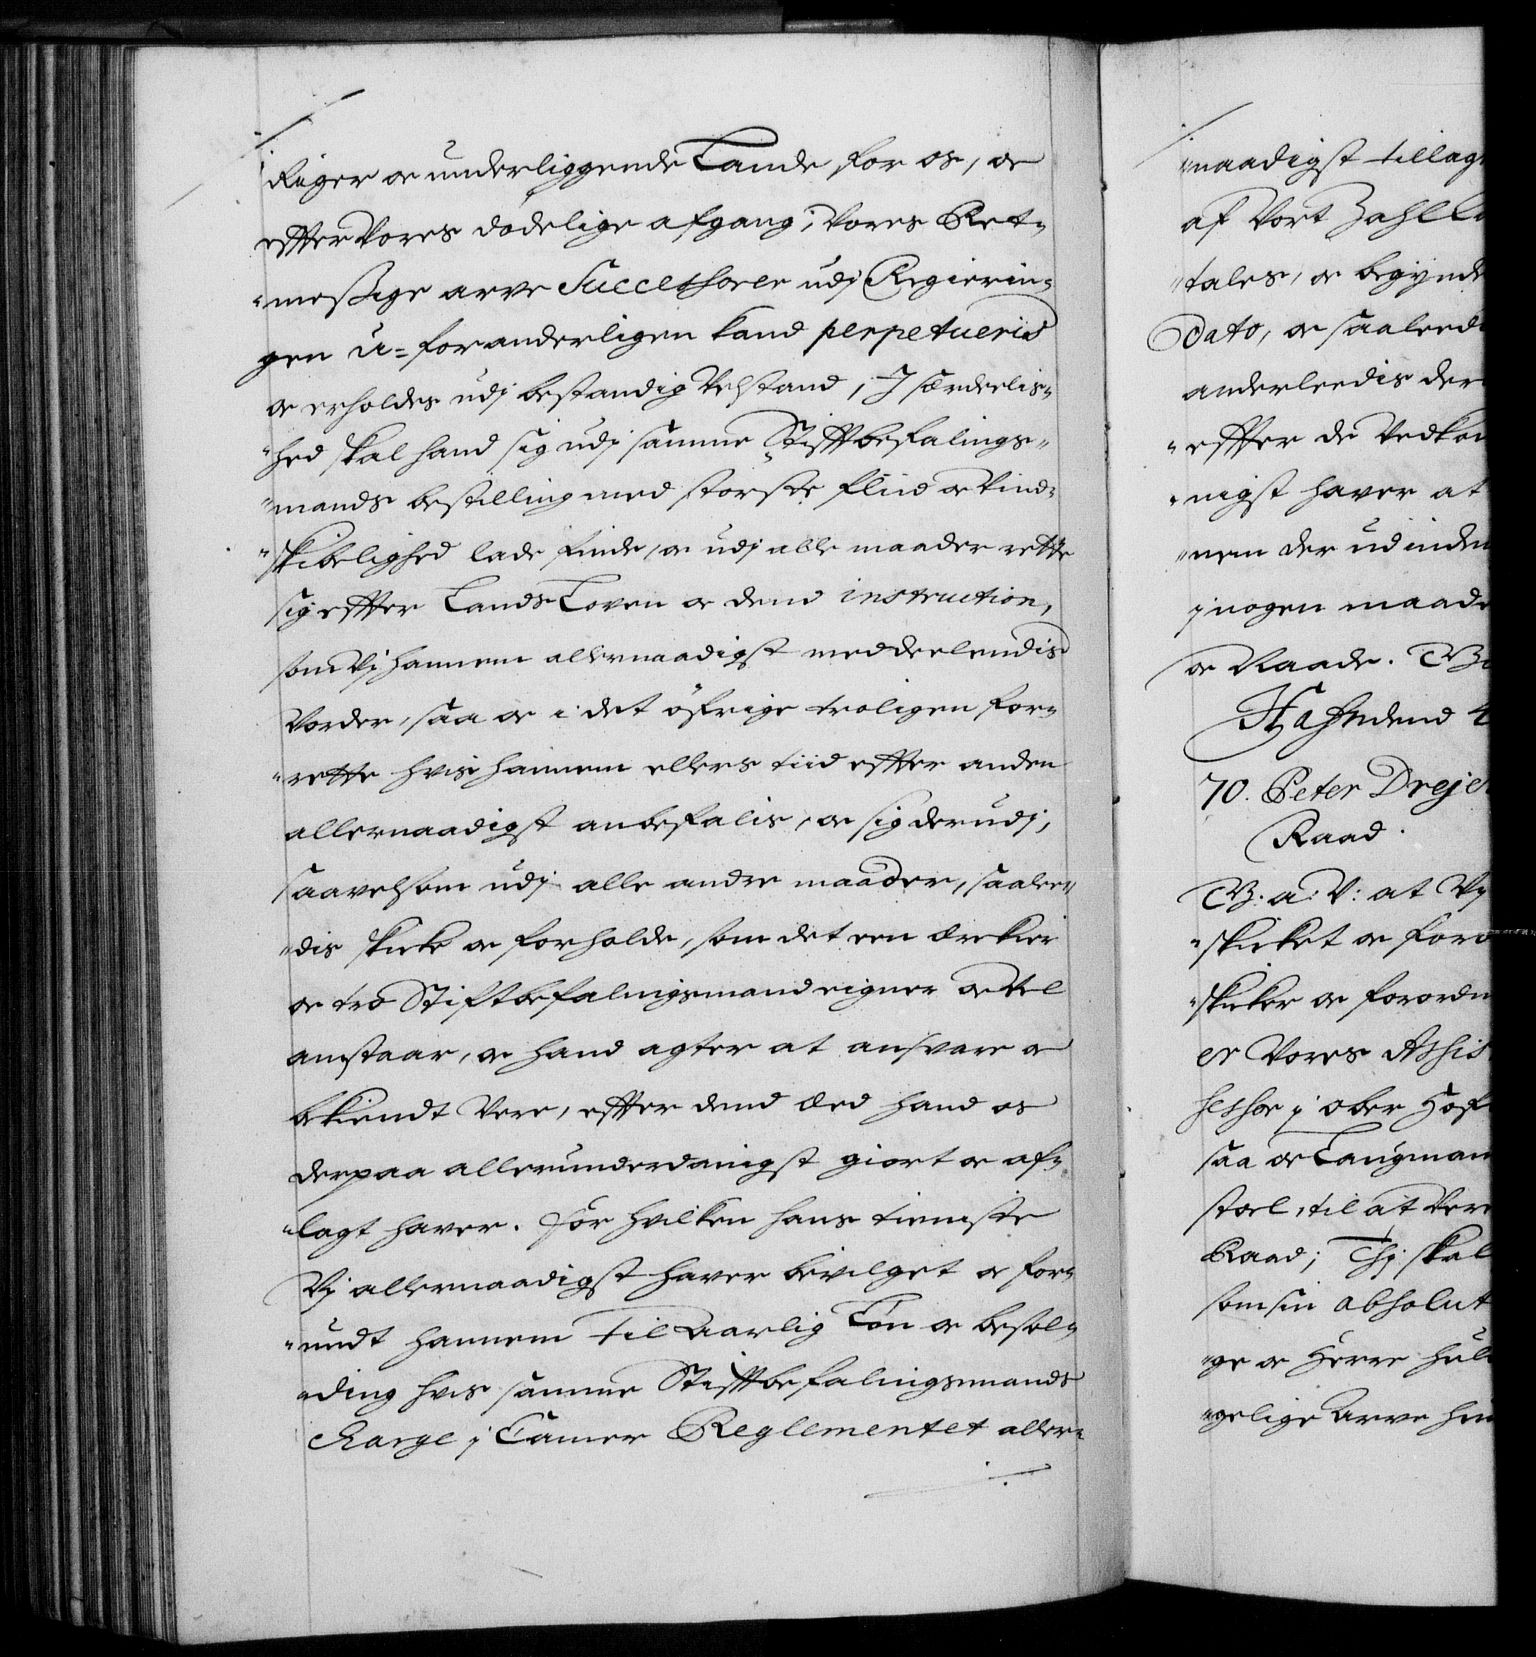 Riger oc underliggende Lande for os, oc
effter Vores dödelige afgang, Vores Ret-
messige arve Successorer udj Regierin-
gen u-foranderligen kand perpetueris
oc erholdes udj bestandig Velstand, J særdeelis-
hed skal hand sig udj samme Stifftbefalings-
mands bestilling med störste fliid oc Vind-
skibelighed lade finde, oc udj alle maader rette
sig effter Lands Loven oc dend instruction,
som Vj hannem allernaadigst meddeelendis
Vorder, saa oc i det öfrige troligen for-
rette hvis hannem ellers tiid effter anden
allernaadigst anbefalis, oc sig derudj,
saavelsom udj alle andre maader, saalee-
dis skicke oc forholde, som det een ærekier
oc tro Stiftbefalingsmand eigner oc Vel
anstaar, oc hand agter at ansvare oc
bekiendt Vere, effter dend Eed hand os
derpaa allerunderdanigst giort oc af-
lagt haver. For hvilken hans tieniste
Vj allernaadigst haver bevilget oc for-
undt hannem til aarlig Lön oc besol-
ding hvis samme Stifftbefalingsmands
Charge j Camer Reglementet aller-
naadigst tillagt
af Vort Zahl
tales, oc begynde
Dato, oc saaleedi
anderleedis der
effter de Vedkom
nigst haver at
nem der udinden
j nogen maade
oc Naade. 
Hafn dend 4
70. Peter Dreje
Raad.
G. a. V: at Vj
skicket oc foro
skicker oc forordn
er Vores Assis
sessor j ober Hof
saa oc Laugman
stoel, til at Vere
Raad; Thj skal
som sin absolut
ge oc Herre hul
gelige Arve her